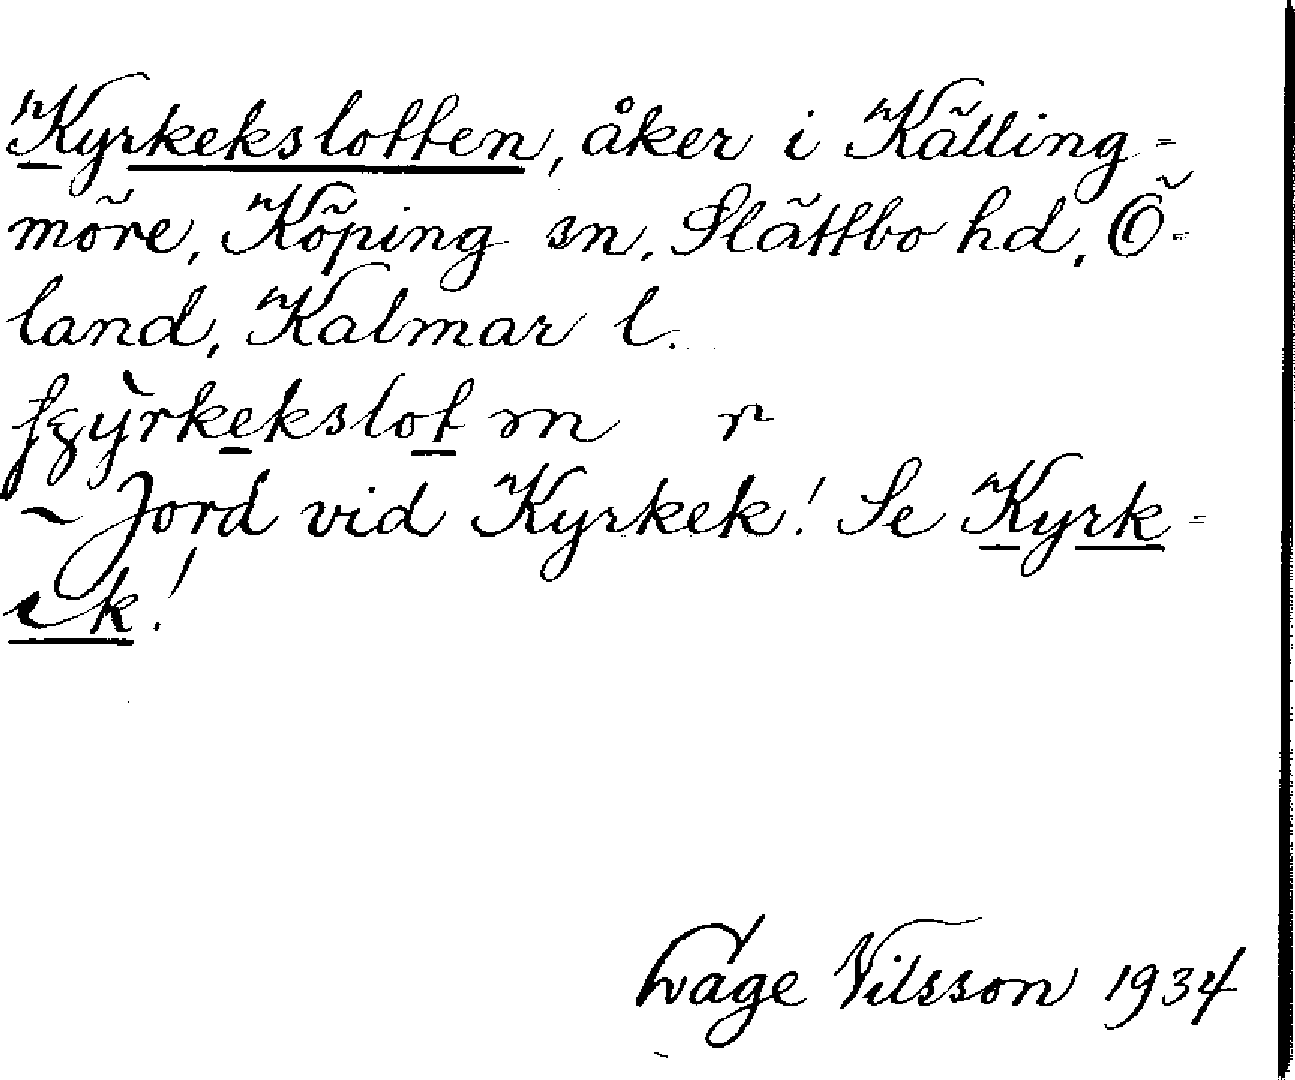 Kyrkekslotten, åker i Källing-
möre, Köping sn, Slättbo hd, Ö-
land, Kalmar l.
Jord vid Kyrkek! Se Kyrk-
ek!
Nilsson 1934